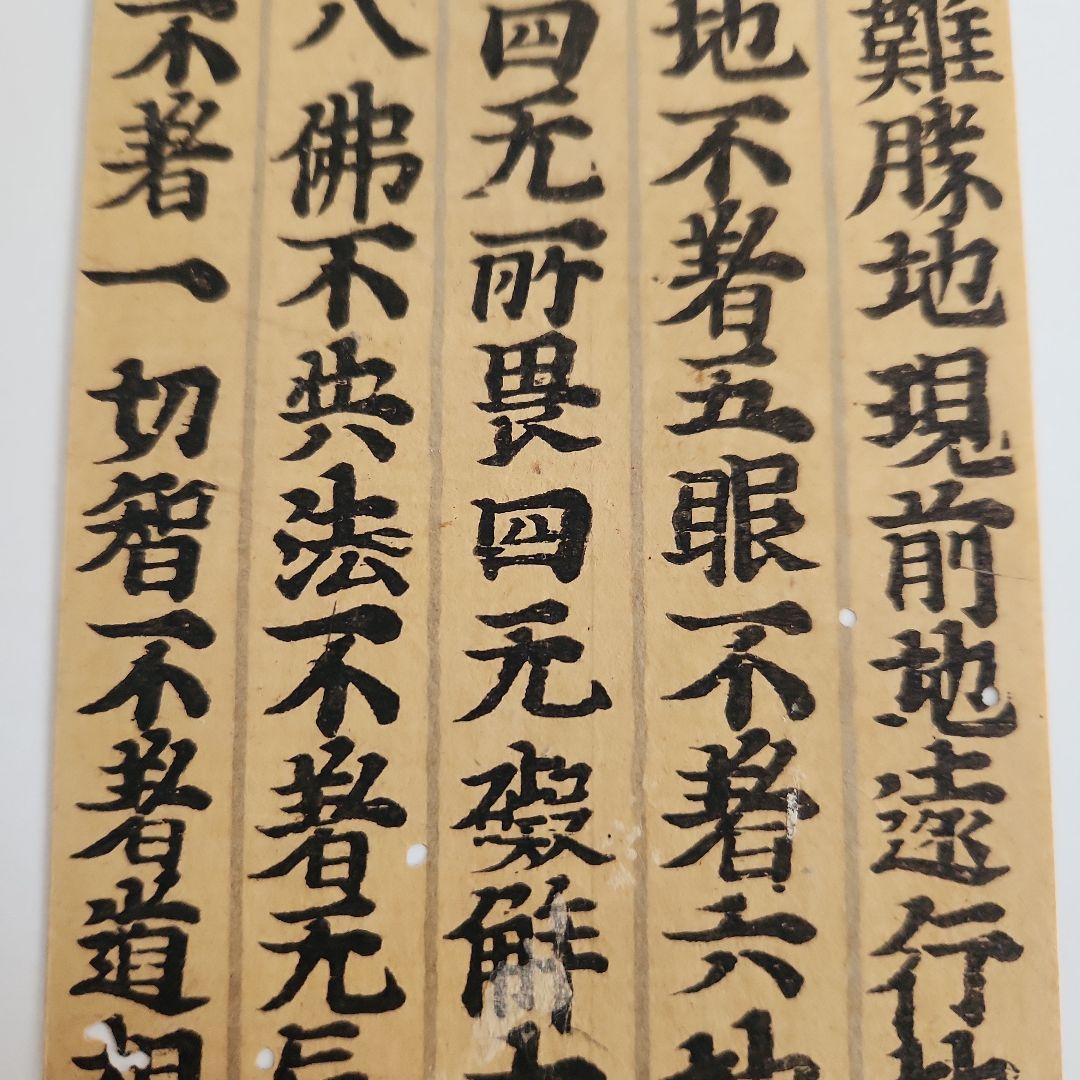 難勝地現前地遠行地
地不著五眼不著六
四无所畏四无礙解
八佛不共法不著无
不著一切智不著道相